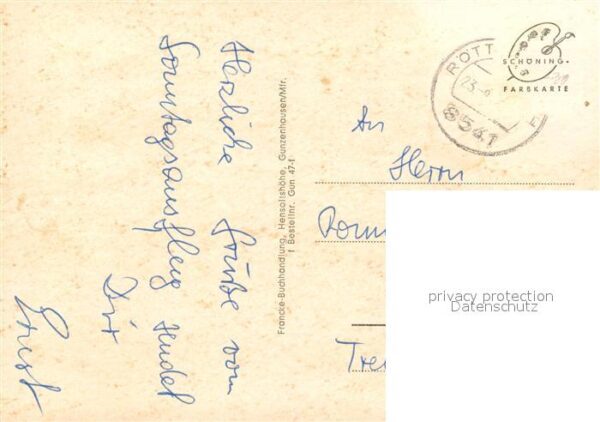 Herzliche Grüße vom
Sonntagsausflug sendet
Dir
Ernst
Francke-Buchhandlung, Hensoltshöhe, Gunzenhausen/Mfr.
f Bestellnr. Gun 47-f
RÖTT
23.
8541
SCHÖNING·
FARBKARTE
An
Herrn
privacy protection
Datenschutz